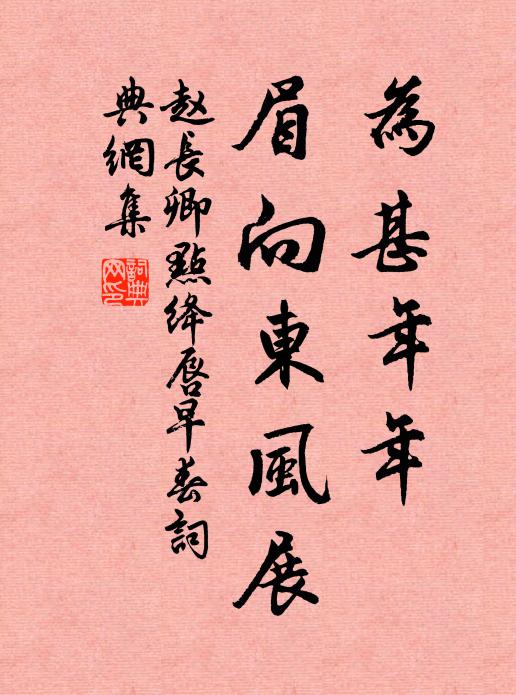 為甚年年
眉向東風展
赵長卿點绛唇早春詞
典網集
詞典网印